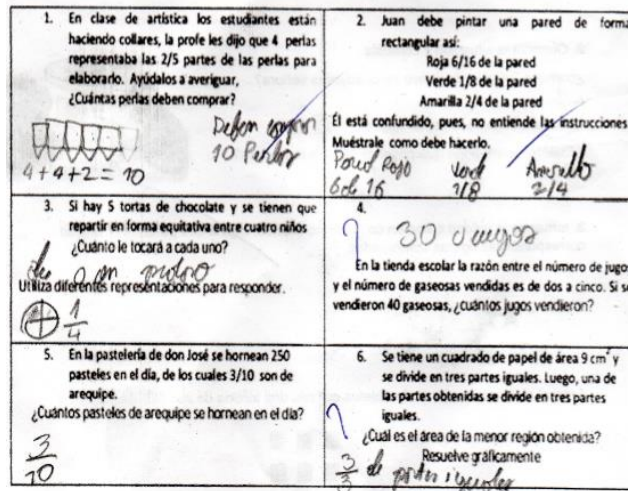 1. En clase de artística los estudiantes están
haciendo collares, la profe les dijo que 4 perlas
representaba las 2/5 partes de las perlas para
elaborarlo. Ayúdalos a averiguar,
¿Cuántas perlas deben comprar?
Deben comprar
10 Perlas
4+4+2=10
2. Juan debe pintar una pared de forma
rectangular así:
Roja 6/16 de la pared
Verde 1/8 de la pared
Amarilla 2/4 de la pared
Él está confundido, pues, no entiende las instrucciones
Muéstrale como debe hacerlo.
Pared Rojo verde Amarillo
6 de 16 1/8 2/4
3. Si hay 5 tortas de chocolate y se tienen que
repartir en forma equitativa entre cuatro niños
¿Cuánto le tocará a cada uno?
Utiliza diferentes representaciones para responder.
1/4
4.
30 Jugos
En la tienda escolar la razón entre el número de jugo
y el número de gaseosas vendidas es de dos a cinco. Si s
vendieron 40 gaseosas, ¿cuántos jugos vendieron?
5. En la pastelería de don José se hornean 250
pasteles en el día, de los cuales 3/10 son de
arequipe.
¿Cuántos pasteles de arequipe se hornean en el día?
3/10
6. Se tiene un cuadrado de papel de área 9 cm² y
se divide en tres partes iguales. Luego, una de
las partes obtenidas se divide en tres partes
iguales.
¿Cuál es el área de la menor región obtenida?
Resuelve gráficamente
3/3 de partes iguales